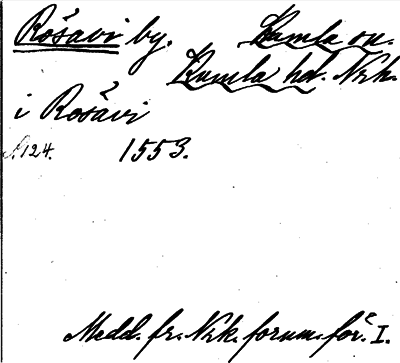 Rösavi by. Kumla sn.
Kumla hd. Nrk.
i Rosävi
s. 124. 1553.
Medd. fr. Nrk. fornm. för. I.